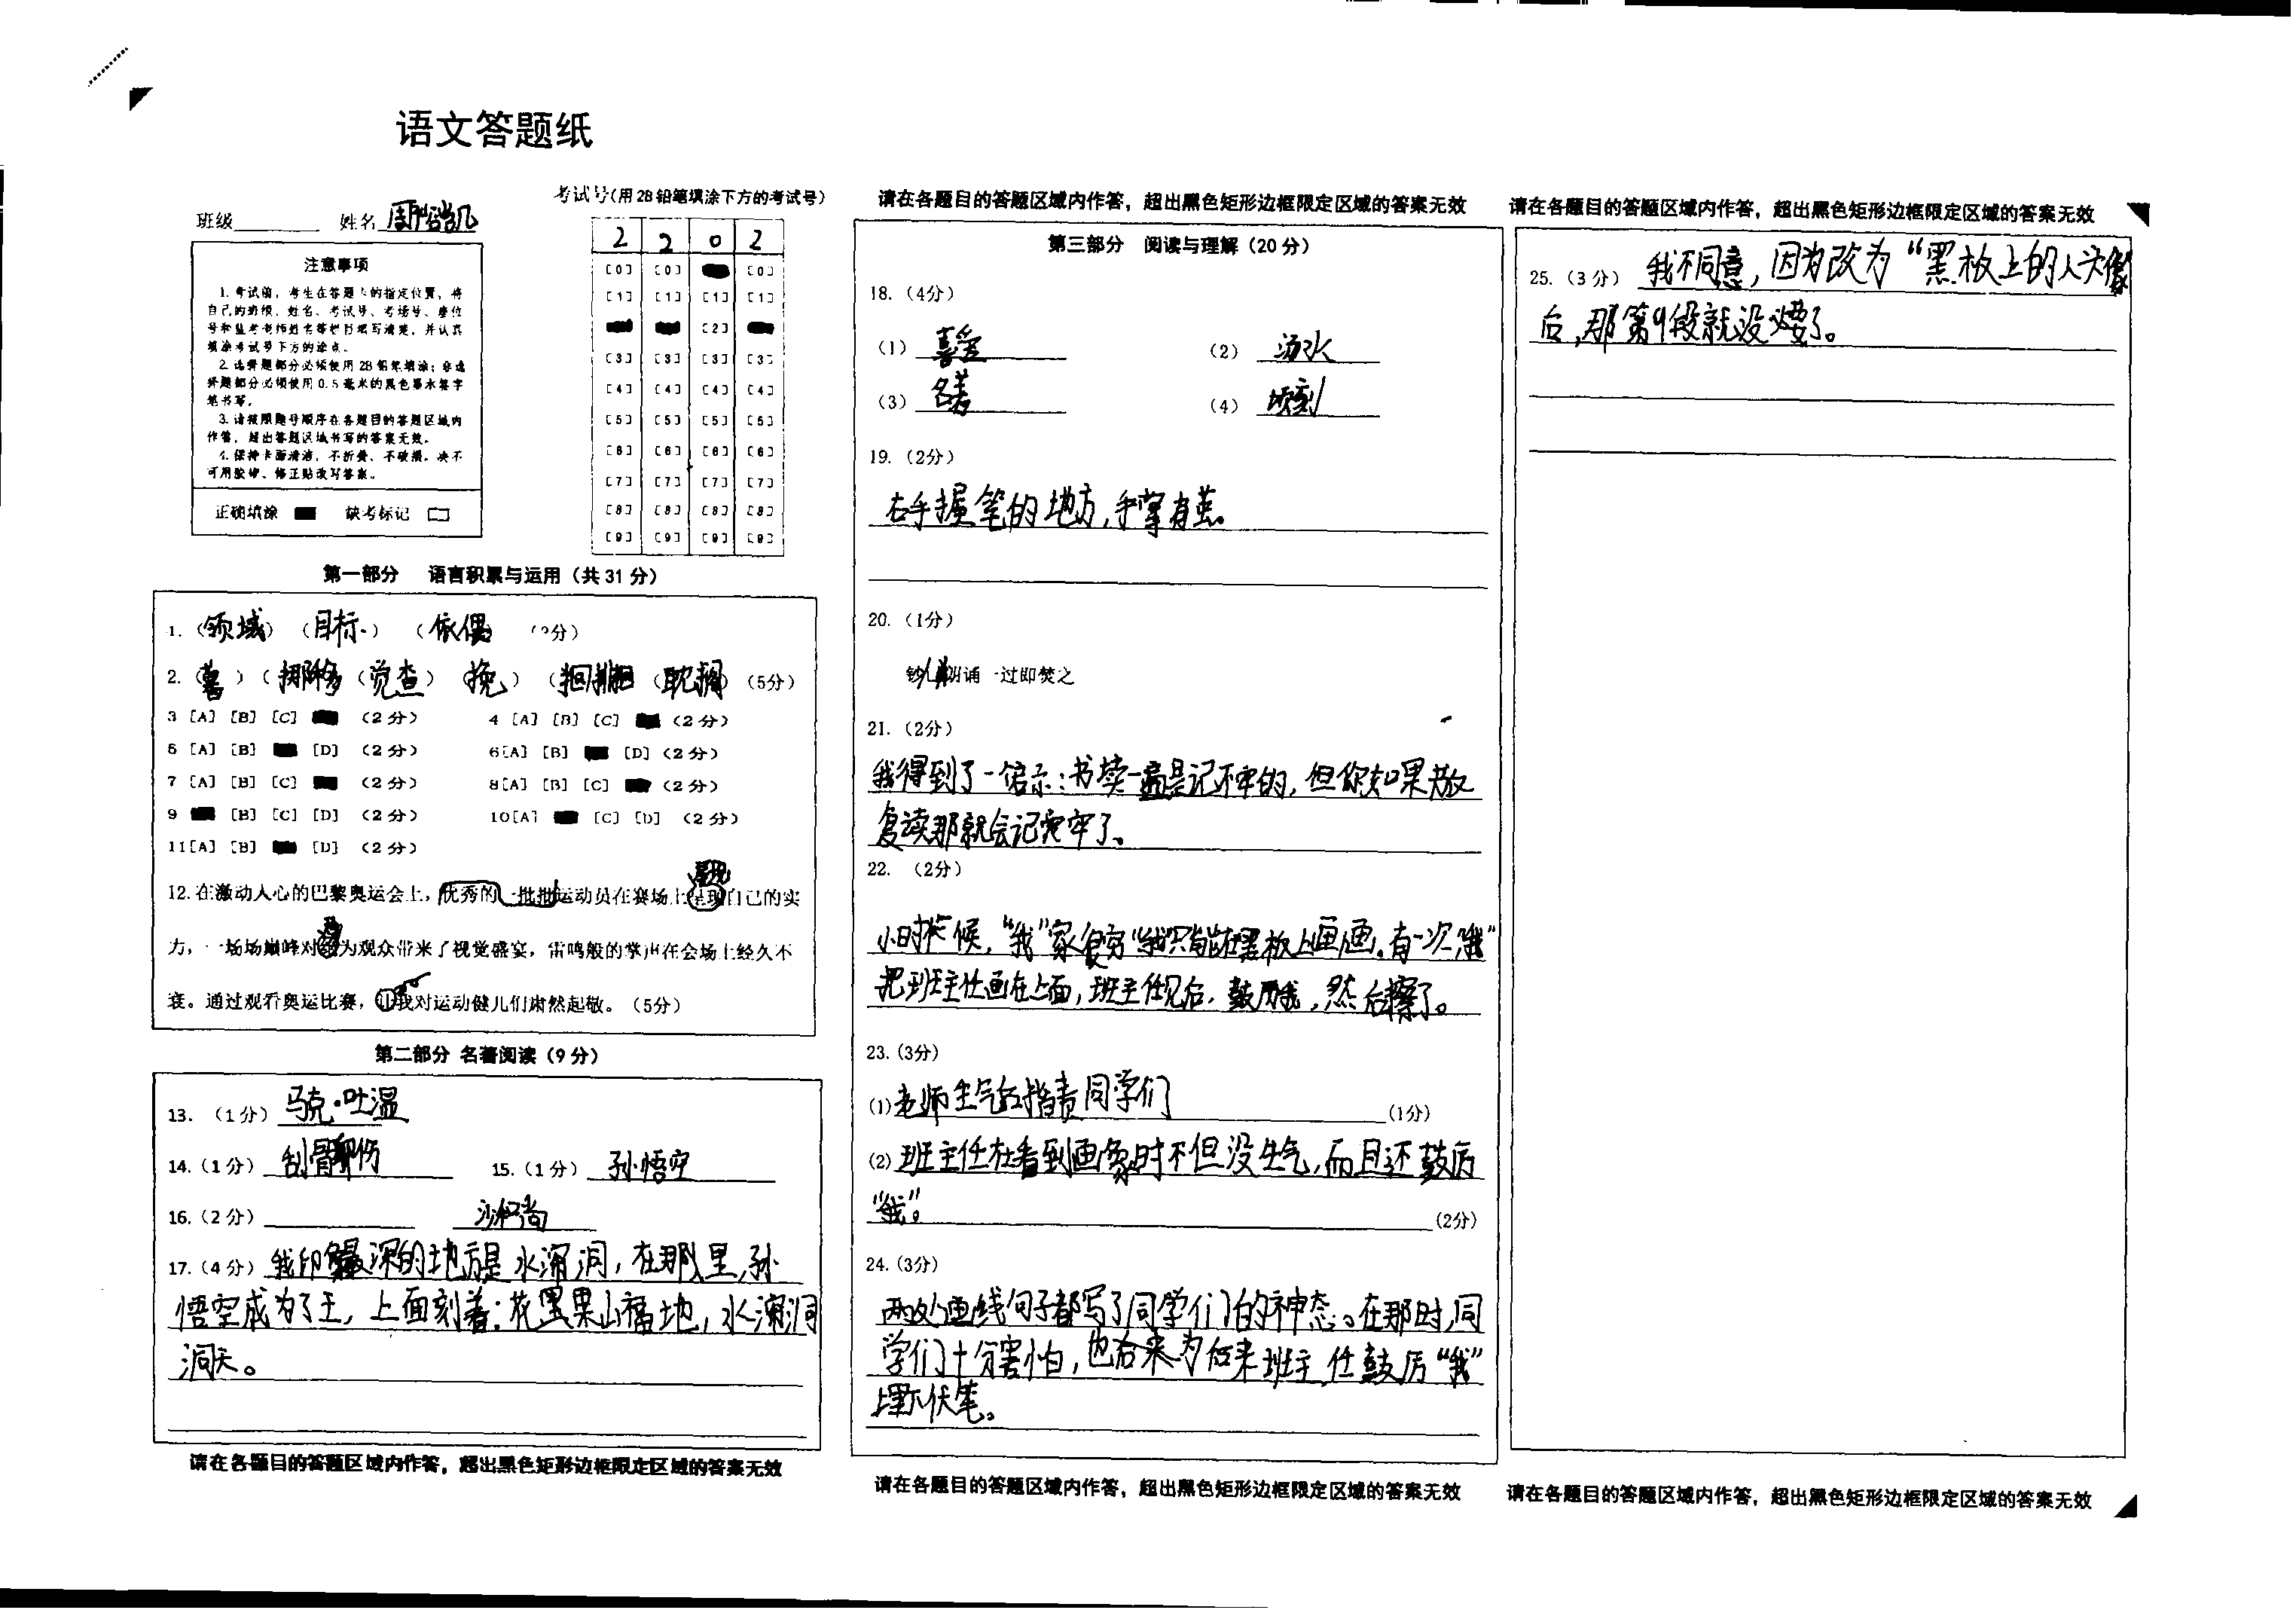 语文答题纸
班级 姓名
考试号(用2B铅笔填涂下方的考试号)
2 2 0 2
[0] [0] [0]
[1] [1] [1] [1]
[2]
[3] [3] [3] [3]
[4] [4] [4] [4]
[5] [5] [5] [5]
[6] [6] [6] [6]
[7] [7] [7] [7]
[8] [8] [8] [8]
[9] [9] [9] [9]
注意事项
1.考试前,考生在答题卡的指定位置,将
自己的班级、姓名、考试号、考场号、座位
号和监考老师姓名等栏目填写清楚,并认真
填涂考试号下方的涂点。
2.选择题部分必须使用2B铅笔填涂;非选
择题部分必须使用0.5毫米的黑色墨水签字
笔书写。
3.请按照题号顺序在各题目的答题区域内
作答,超出答题区域书写的答案无效。
4.保持卡面清洁,不折叠、不破损。决不
可用胶带、修正贴改写答案。
正确填涂 缺考标记
第一部分 语言积累与运用(共31分)
1.(领域)(目标)(依偎 分)
2.( )(挪移(觉查)(挽)( (耽搁)(5分)
3 [A] [B] [C] (2分) 4 [A] [B] [C] (2分)
5 [A] [B] [D] (2分) 6[A] [B] [D](2分)
7 [A] [B] [C] (2分) 8[A] [B] [C] (2分)
9 [B] [C] [D] (2分) 10[A] [C] [D] (2分)
11[A] [B] [D] (2分)
12.在激动人心的巴黎奥运会上,优秀的一批批运动员在赛场上呈现自己的实
力,一场场巅峰对 为观众带来了视觉盛宴,雷鸣般的掌声在会场上经久不
衰。通过观看奥运比赛,让我对运动健儿们肃然起敬。(5分)
第二部分 名著阅读(9分)
13.(1分) 马克·吐温
14.(1分) 刮骨 伤 15.(1分) 孙悟空
16.(2分) 沙和尚
17.(4分) 我印象最深的地方是水帘洞,在那里,孙
悟空成为了王,上面刻着:花 果山福地,水帘洞
洞天。
请在各题目的答题区域内作答,超出黑色矩形边框限定区域的答案无效
请在各题目的答题区域内作答,超出黑色矩形边框限定区域的答案无效
第三部分 阅读与理解(20分)
18.(4分)
(1) 喜爱 (2) 汤水
(3) 名著 (4) 顷刻
19.(2分)
右手握笔的地方,手掌有茧。
20.(1分)
诵一过即焚之
21.(2分)
我得到了一启示:书读一遍是记不牢的,但你如果
复读那就会记 牢了。
22.(2分)
小时候,“我”家很穷“我”只能在黑板上画画。有一次“我”
把班主任画在上面,班主任见后,鼓厉我,然后擦了。
23.(3分)
(1)老师生气的指责同学们 (1分)
(2)班主任在看到画像时不但没生气,而且还鼓厉
“我”。 (2分)
24.(3分)
两处画线句子都写了同学们的神态。在那时,同
学们十分害怕,也 为后来班主任鼓厉“我”
埋下伏笔。
请在各题目的答题区域内作答,超出黑色矩形边框限定区域的答案无效
请在各题目的答题区域内作答,超出黑色矩形边框限定区域的答案无效
25.(3分) 我不同意,因为改为“黑板上的人头像
后,那第9段就没 要了。
请在各题目的答题区域内作答,超出黑色矩形边框限定区域的答案无效